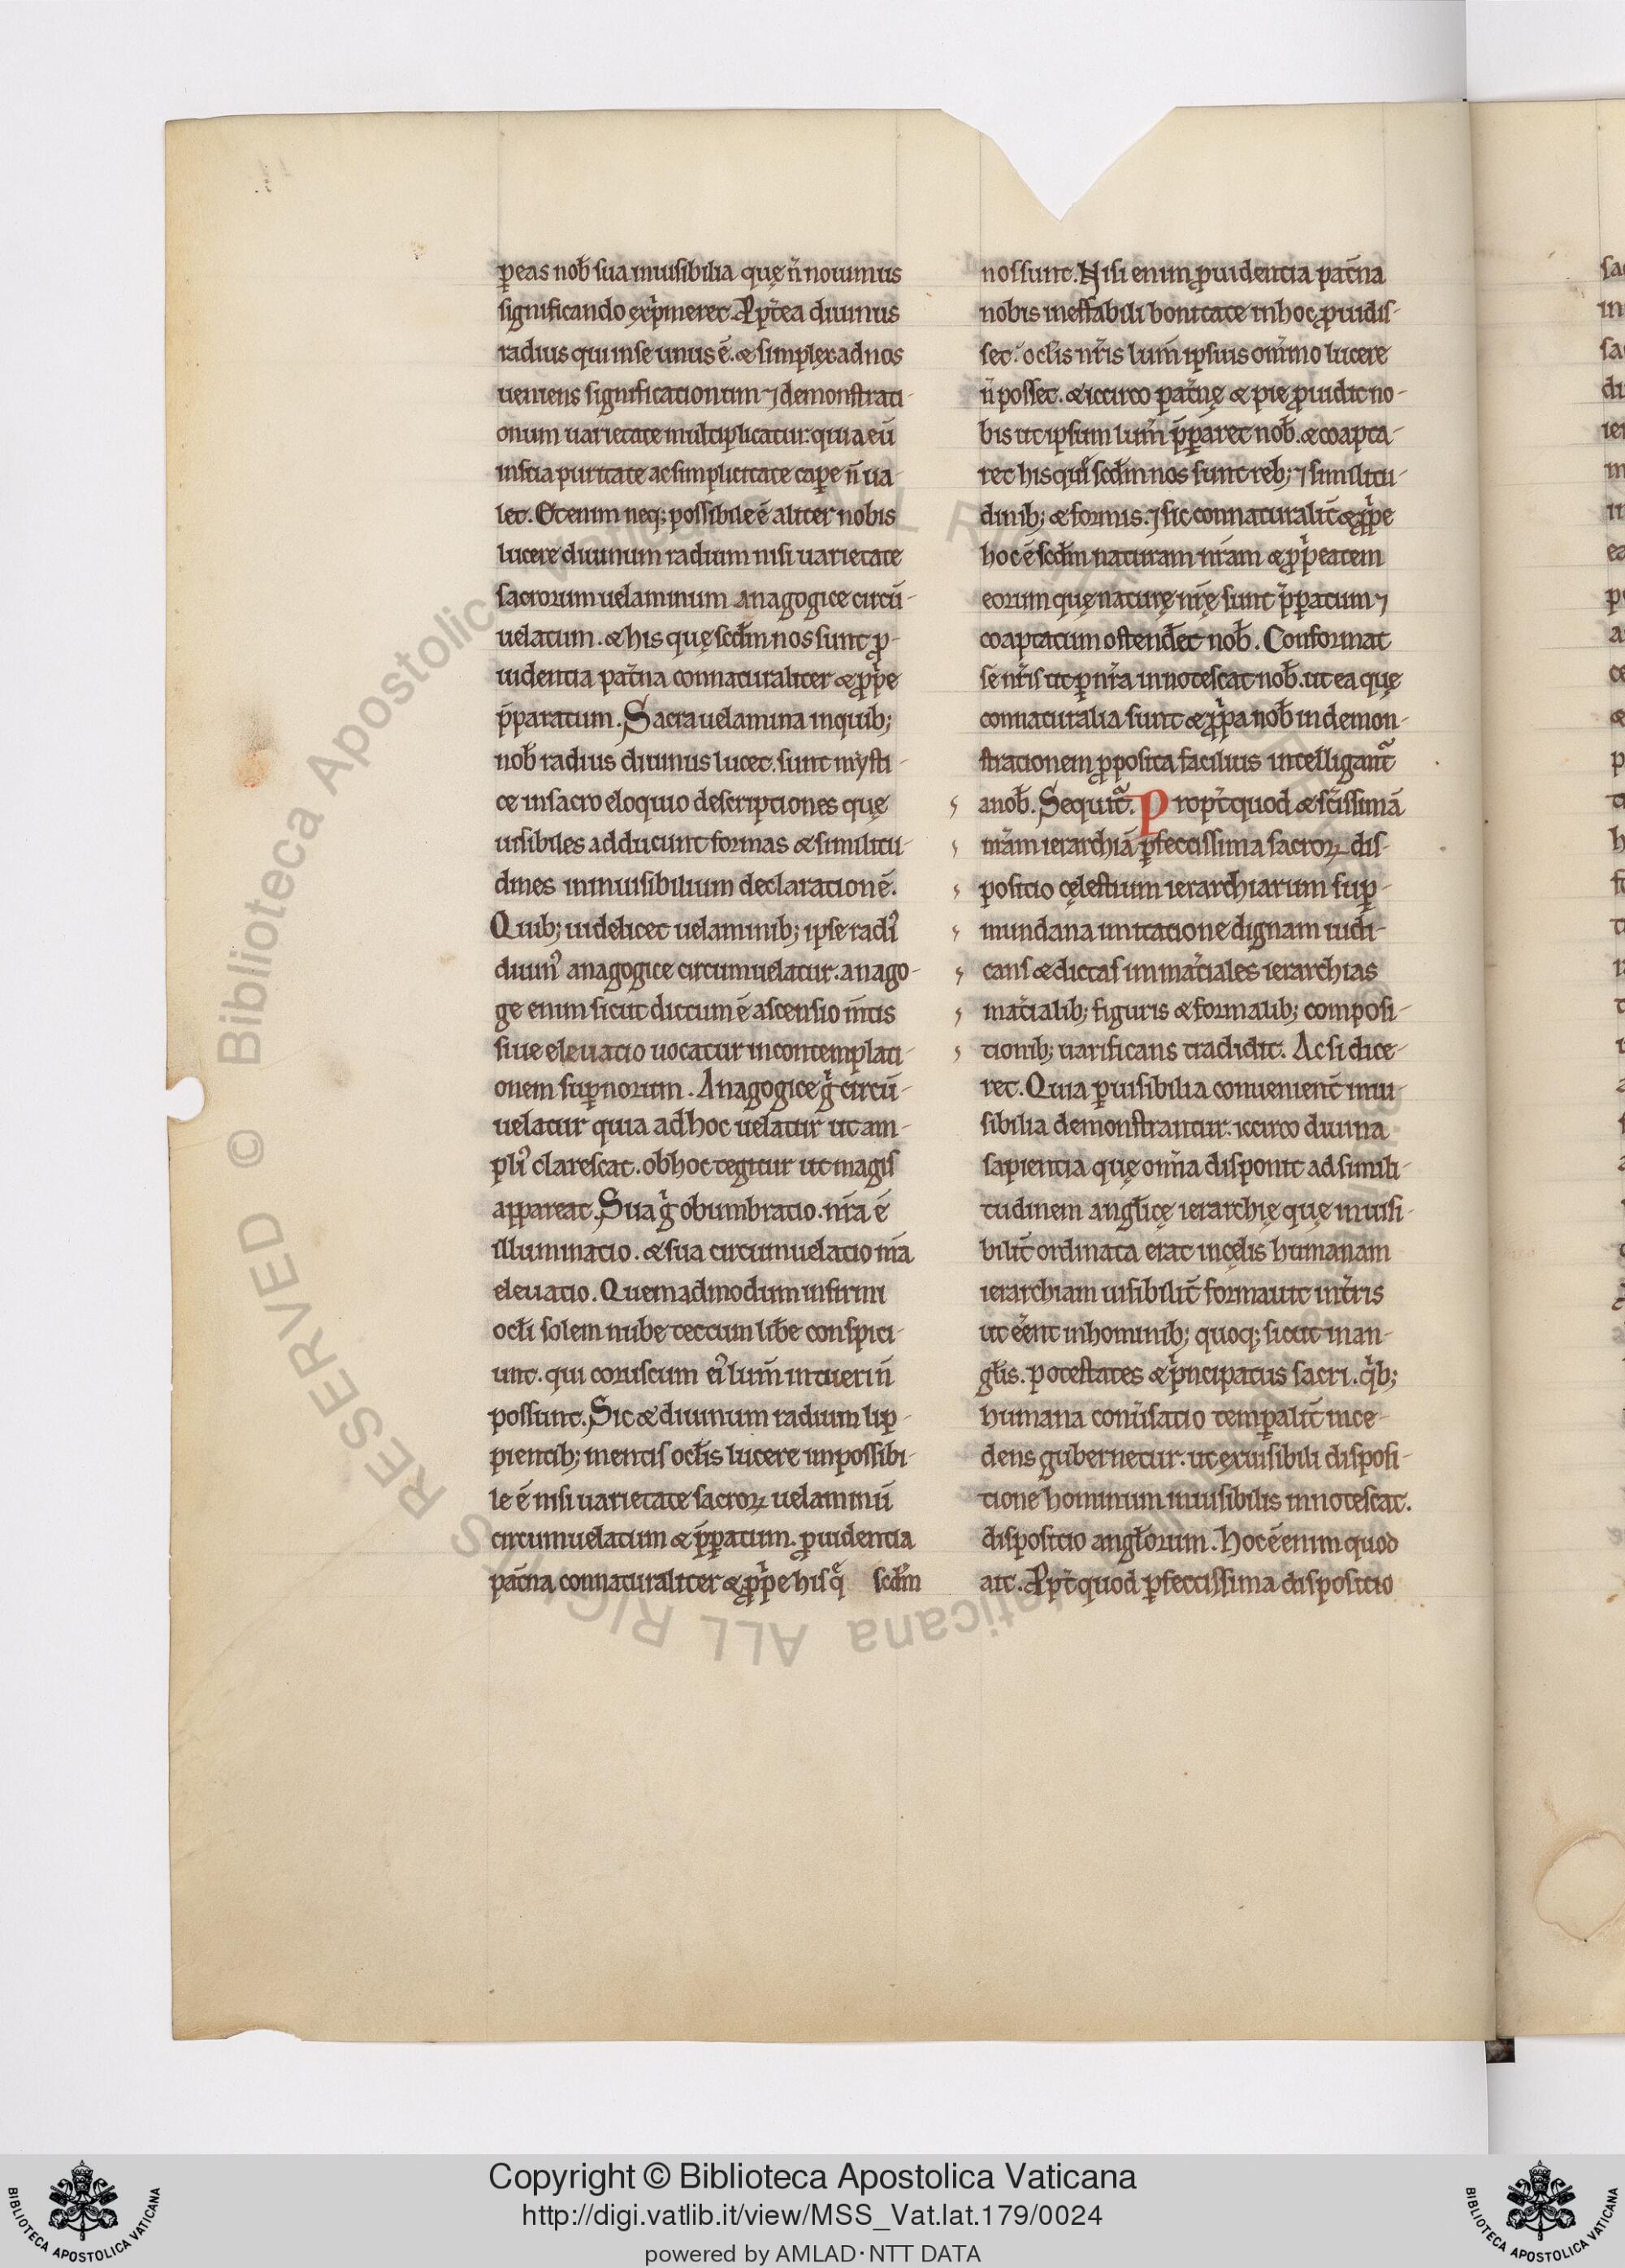 ꝑ eas nob̄ sua inuisibilia quę n̄ nouimus
significando exp̍meret. Ꝓpt̄ea diuinus
radius qui in se unus ē. & simplex ad nos
ueniens significationum ⁊ demonstrati-
onum uarietate multiplicatur: quia eū
in sua puritate ac simplicitate caꝑe n̄ ua-
let. Etenim neq; possibile ē aliter nobis
lucere diuinum radium nisi uarietate
sacrorum uelaminum anagogice circū-
uelatum. & his quę scd̄m nos sunt ꝓ-
uidentia pat̄na connaturaliter & ꝓp̍e
p̄paratum. Sacra uelamina in quib;
nob̄ radius diuinus lucet. sunt mysti-
ce in sacro eloquio descriptiones quę
uisibiles adducunt formas & similitu-
dines in inuisibilium declarationē.
Quib; uidelicet uelaminib; ipse radiꝰ
diuinꝰ anagogice circumuelatur. anago-
ge enim sicut dictum ē ascensio m̄tis
siue eleuatio uocatur in contemplati-
onem suꝑnorum. Anagogice g̍ circū-
uelatur quia ad hoc uelatur ut am-
pliꝰ clarescat. ob hoc tegitur ut magis
appareat. Sua g̍ obumbratio. nr̄a ē
illuminatio. & sua circumuelatio nr̄a
eleuatio. Quemadmodum infirmi
ocl̄i solem nube tectum libe conspici-
unt. qui coruscum eiꝰ lum̄ intueri n̄
possunt. Sic & diuinum radium lip-
pientib; mentis ocl̄is lucere impossibi-
le ē nisi uarietate sacroꝝ uelaminū
circumuelatum & p̄ꝑatum. ꝓuidentia
pat̄na connaturaliter & ꝓp̍e his q̄ scd̄m
nos sunt. Nisi enim ꝓuidentia pat̄na
nobis ineffabili bonitate in hoc ꝓuidis-
set. ocl̄is nr̄is lum̄ ipsius om̄ino lucere
n̄ posset. & iccirco pat̄nę & pie ꝓuidit no-
bis ut ipsum lum̄ p̄ꝑaret nob̄. & coapta-
ret his quę scd̄m nos sunt reb; ⁊ similitu-
dinib; & formis. ⁊ sic connaturalit̄ & ꝓp̍e
hoc ē scd̄m naturam nr̄am & ꝓp̍etatem
eorum quę naturę nr̄ę sunt p̄ꝑatum ⁊
coaptatum ostend̄et nob̄. Conformat
se nr̄is ut ꝑ nr̄a innotescat nob̄. ut ea quę
connaturalia sunt & ꝓp̍a nob̄ in demon-
strationem ꝓposita facilius intelligant̄
a nob̄. Sequit̄. Propt̄ quod & sc̄issimā
nr̄am ierarchiā ꝑfectissima sacroꝝ dis-
positio cęlestium ierarchiarum suꝑ-
mundana imitatione dignam iudi-
cans & dictas immat̄iales ierarchias
mat̄ialib; figuris & formalib; composi-
tionib; uarificans tradidit. Ac si dice-
ret. Quia ꝑ uisibilia conuenient̄ inui-
sibilia demonstrantur. iccirco diuina
sapientia quę om̄ia disponit ad simili-
tudinem angl̄icę ierarchię quę inuisi-
bilit̄ ordinata erat in cęlis humanam
ierarchiam uisibilit̄ formauit in t̄ris
ut ēent in hominib; quoq; sicut in an-
gl̄is. potestates & p̍ncipatus sacri. q̍b;
humana conūsatio temꝑalit̄ ince-
dens gubernetur. ut ex uisibili disposi-
tione hominum inuisibilis innotescat.
dispositio angl̄orum. Hoc ē enim quod
ait. Ꝓpt̄ quod ꝑfectissima dispositio
Copyright © Biblioteca Apostolica Vaticana
http://digi.vatlib.it/view/MSS_Vat.lat.179/0024
powered by AMLAD·NTT DATA